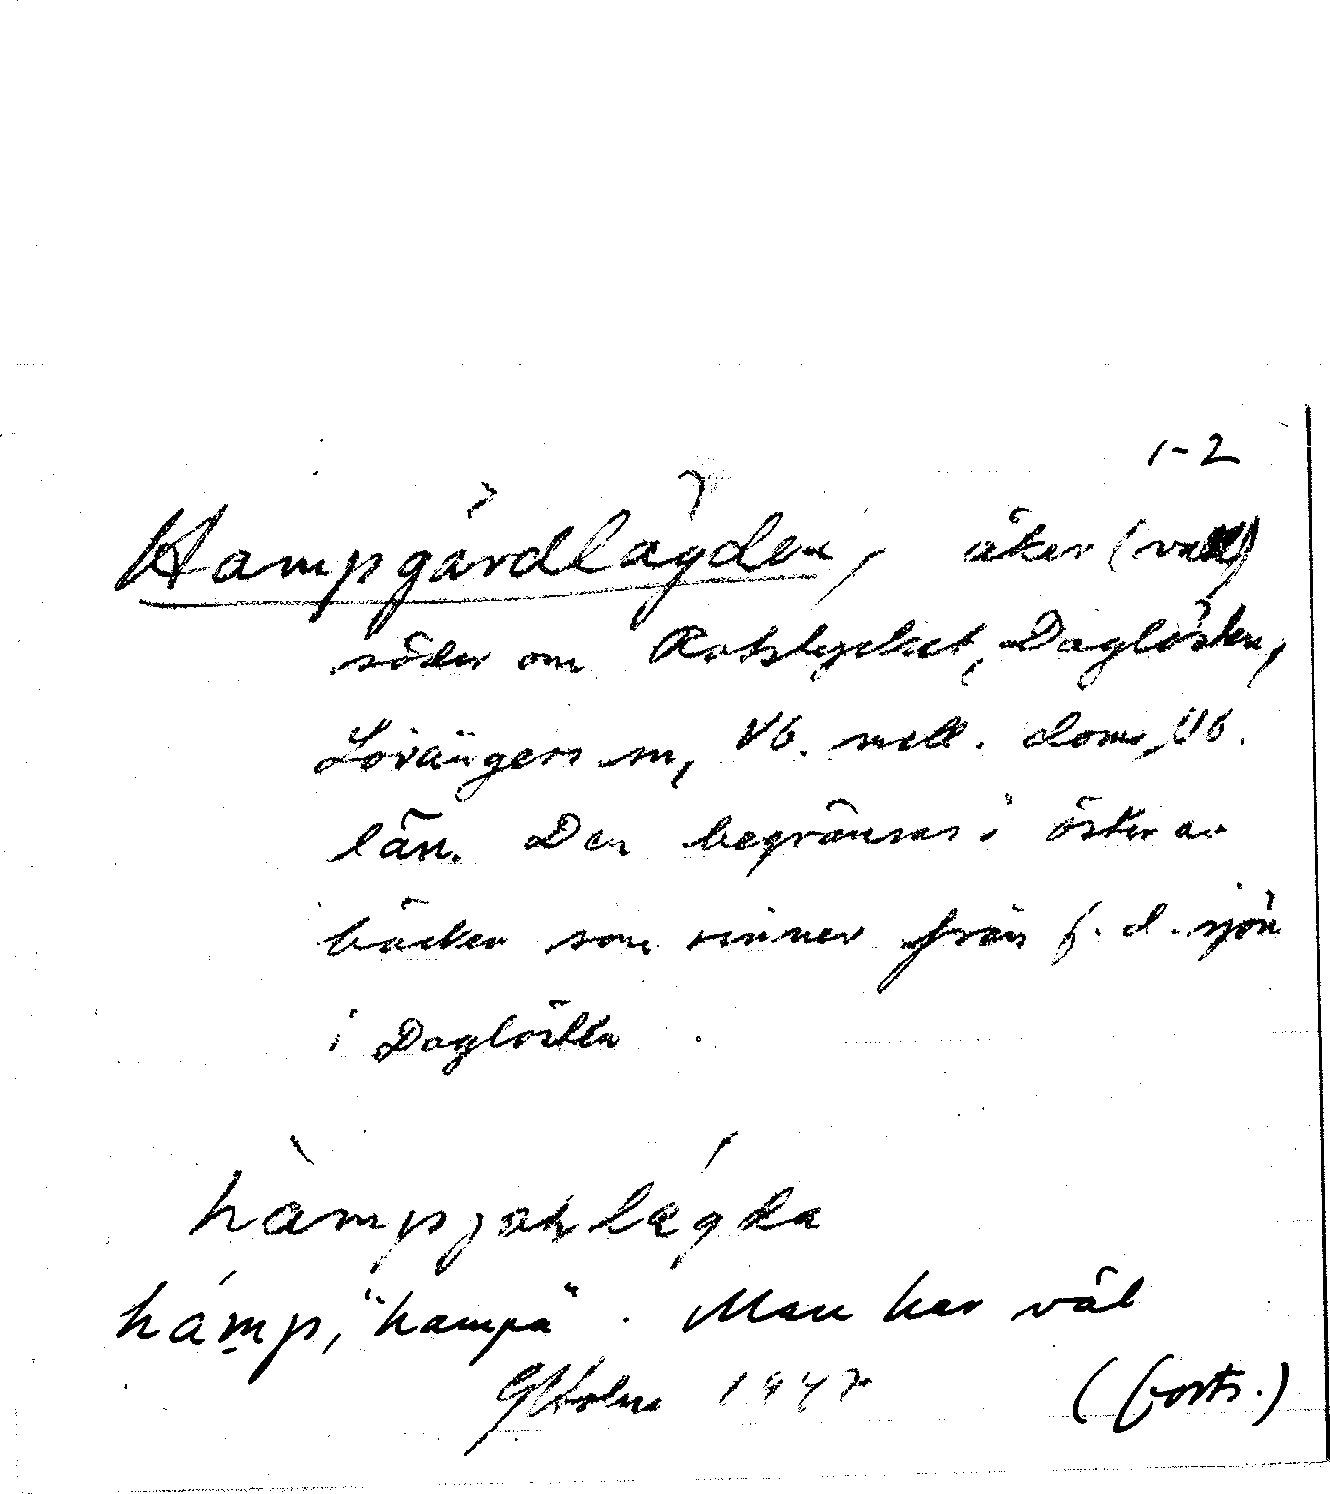 1-2
Hampgårdlägden, åker (vall)
söder om Rotstycket, Daglösten,
Lövångers sn, Vb. mell. doms, Vb.
län. Den begränsas i öster av
bäcken som rinner från f. d. sjön
i Daglösten.
hàmpjoḷägda
hámp, "hampa". Man har väl
G Holm 1947
(forts.)